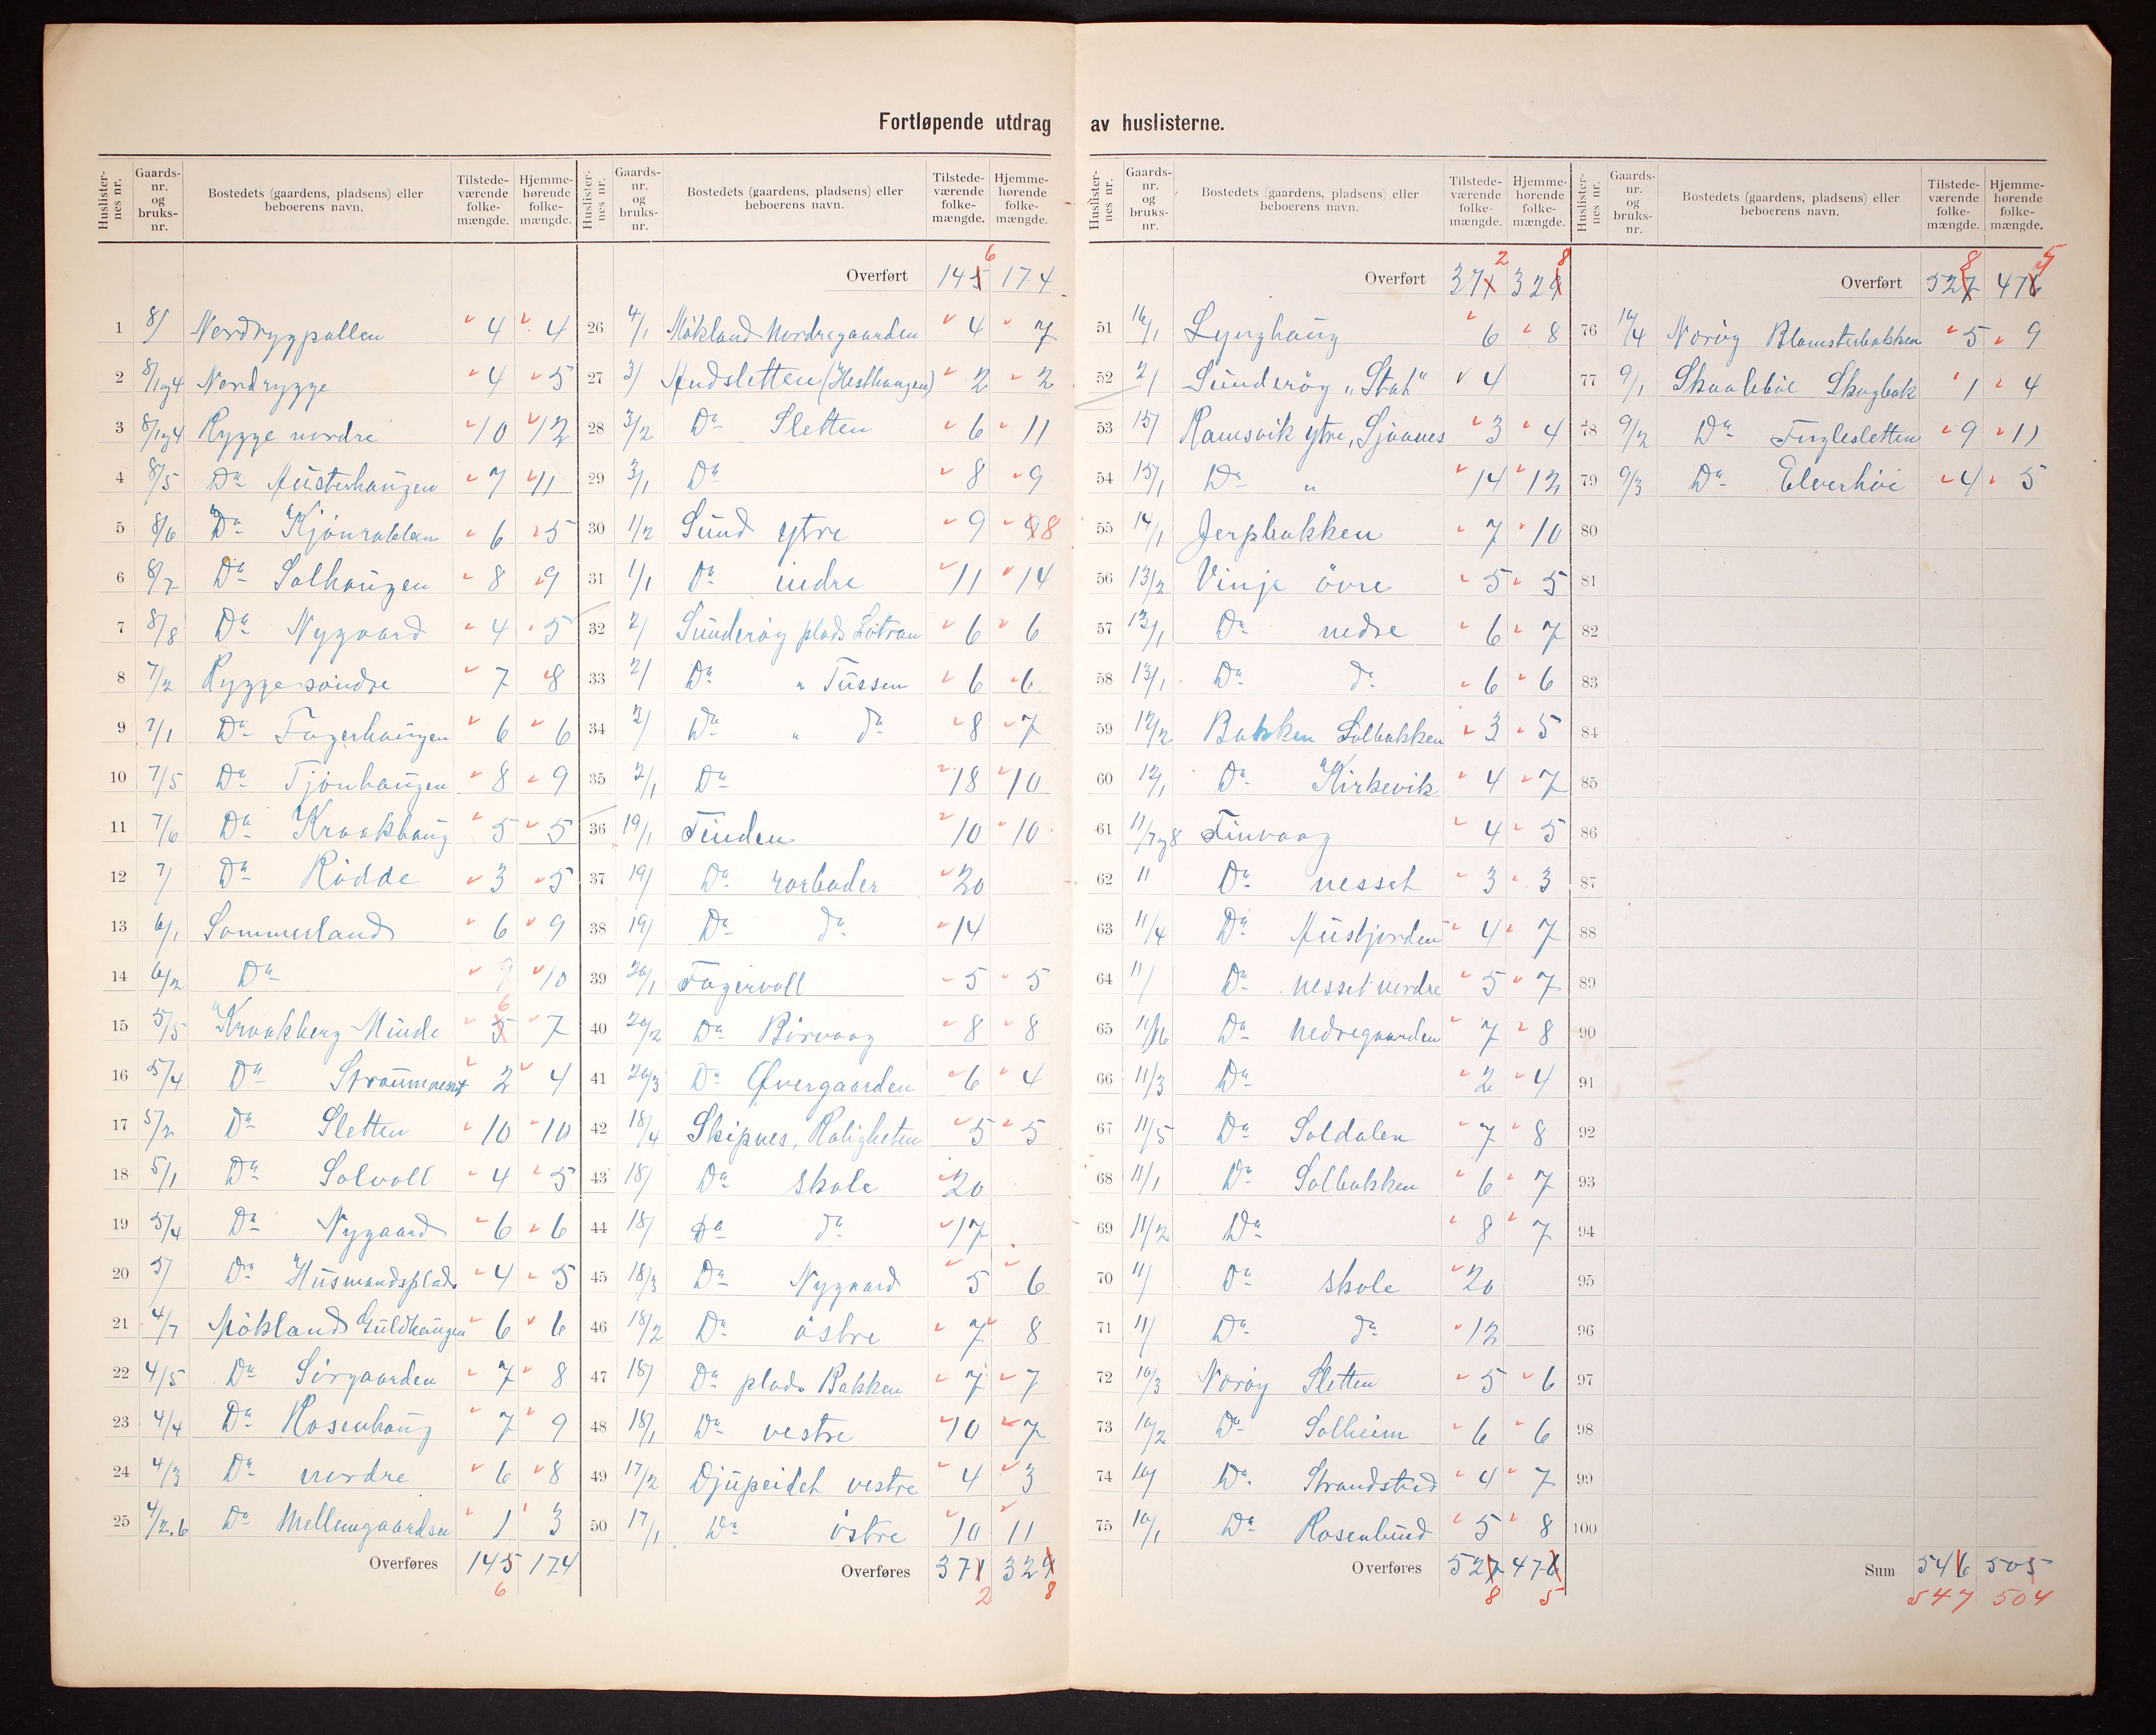 Fortløpende utdrag av huslisterne.
Huslisternes nr. Gaards-nr. og bruks-nr. Bostedets (gaardens, pladsens) eller beboerens navn. Tilstedeværende folkemængde. Hjemmehørende folkemængde.
1 8/ Nordryggpollen 4 4
2 8/1 og 4 Nordrygge 4 5
3 8/1 og 4 Rygge nordre 10 12
4 8/5 Do Austerhaugen 7 11
5 8/6 Do Kjønrabben 6 5
6 8/7 Do Solhaugen 8 9
7 8/8 Do Nygaard 4 5
8 7/2 Rygge søndre 7 8
9 7/1 Do Fagerhaugen 6 6
10 7/5 Do Tjønhaugen 8 9
11 7/6 Do Kraakhaug 5 5
12 7/ Do Rödde 3 5
13 6/1 Sommerland 6 9
14 6/2 Do 9 10
15 5/5 Kraakberg Minde 5 6 7
16 5/4 Do Straumnest 2 4
17 5/2 Do Sletten 10 10
18 5/1 Do Solvoll 4 5
19 5/4 Do Nygaard 6 6
20 5/ Do Husmandsplads 4 5
21 4/7 Mökland Guldhaugen 6 6
22 4/5 Do Sörgaarden 7 8
23 4/4 Do Rosenhaug 7 9
24 4/3 Do nordre 6 8
25 4/2.6 Do Mellemgaarden 1 3
Overføres 145 174
6
Huslisternes nr. Gaards-nr. og bruks-nr. Bostedets (gaardens, pladsens) eller beboerens navn. Tilstedeværende folkemængde. Hjemmehørende folkemængde.
Overført 145 6 174
26 4/1 Mökland Nordregaarden 4 7
27 3/ Andsletten (Hesthaugen) 2 2
28 3/2 Do Sletten 6 11
29 3/1 Do 8 9
30 1/2 Sund ytre 9 9 8
31 1/1 Do indre 11 14
32 2/ Sunderöy plads Lötran 6 6
33 2/ Do " Tussen 6 6
34 2/ Do " do 8 7
35 2/1 Do 18 10
36 19/1 Tinden 10 10
37 19/ Do rorboder 20
38 19/ Do do 14
39 20/1 Fagervoll 5 5
40 20/2 Do Börvaag 8 8
41 20/3 Do Øvergaarden 6 4
42 18/4 Skipnes, Roligheten 5 5
43 18/ Do skole 20
44 18/ Do do 17
45 18/3 Do Nygaard 5 6
46 18/2 Do östre 7 8
47 18/ Do plads Bakken 7 7
48 18/1 Do vestre 10 7
49 17/2 Djupeidet vestre 4 3
50 17/1 Do östre 10 11
Overføres 371 329
2 8
Huslisternes nr. Gaards-nr. og bruks-nr. Bostedets (gaardens, pladsens) eller beboerens navn. Tilstedeværende folkemængde. Hjemmehørende folkemængde.
Overført 371 2 329 8
51 16/1 Lynghaug 6 8
52 2/ Sunderöy "Strah" 4
53 15/ Ramsvik ytre, Sjöanes 3 4
54 15/1 Do " 14 12
55 14/1 Jerpbakken 7 10
56 13/2 Vinje övre 5 5
57 13/1 Do nedre 6 7
58 13/1 Do do 6 6
59 12/2 Bakken Solbakken 3 5
60 12/1 Do Kirkevik 4 7
61 11/7 og 8 Finvaag 4 5
62 11 Do nesset 3 3
63 11/4 Do Ausljorden 4 7
64 11/ Do nesset nordre 5 7
65 11/16 Do Nedregaarden 7 8
66 11/3 Do 2 4
67 11/5 Do Soldalen 7 8
68 11/1 Do Solbakken 6 7
69 11/2 Do 8 7
70 11/ Do skole 20
71 11/ Do do 12
72 10/3 Noröy Sletten 5 6
73 10/2 Do Solheim 6 6
74 10/ Do Strandsted 4 7
75 10/1 Do Rosenlund 5 8
Overføres 527 476
8 5
Huslisternes nr. Gaards-nr. og bruks-nr. Bostedets (gaardens, pladsens) eller beboerens navn. Tilstedeværende folkemængde. Hjemmehørende folkemængde.
Overført 527 8 476 5
76 10/4 Noröy Blomsterbakken 5 9
77 9/1 Skaaleböe Skogbak 1 4
78 9/2 Do Fuglesletten 9 11
79 9/3 Do Elverhöi 4 5
80
81
82
83
84
85
86
87
88
89
90
91
92
93
94
95
96
97
98
99
100
Sum 546 505
547 504